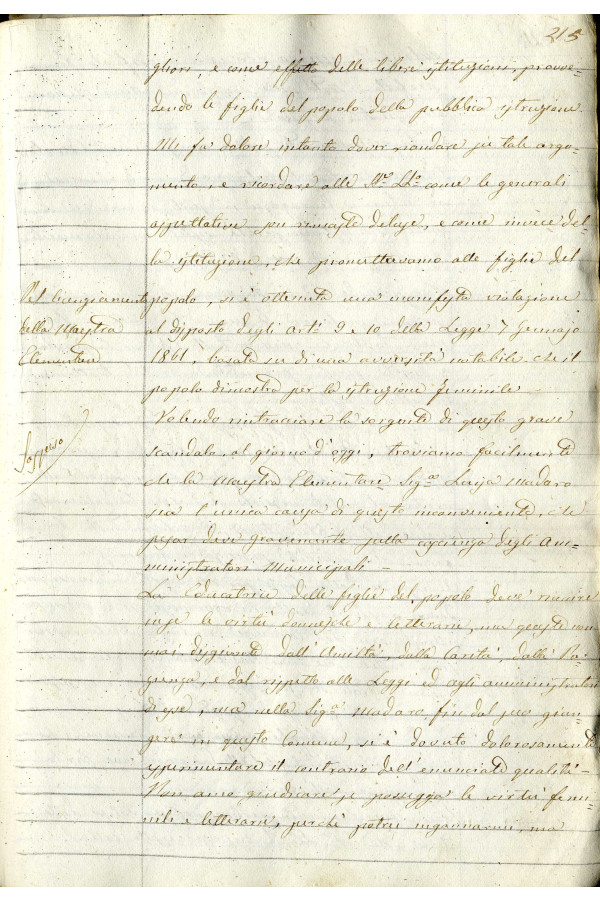 215
gliori, e come effetto delle liberi istituzioni, provve=
dendo le figlie del popolo della pubblica istruzione.
Mi fa dolore intanto dover riandare su tale argo=
mento, e ricordare alle SS.rie LL.e come le generali
aspettative son rimaste deluse, e come invece del=
la istituzione, che promettevamo alle figlie del
popolo, si è ottenuta una manifesta violazione
al disposto degli arti 9 e 10 della Legge 7 Gennajo
1861, basata su di una avversità notabile che il
popolo dimostra per la istruzione feminile
Volendo rintracciare la sorgente di questo grave
scandalo, al giorno d'oggi, troviamo facilmente
che la Maestra Elementare Sig.ra Luisa Madaro
sia l'unica causa di questo inconveniente, che
pesar deve gravemente sulla coscienza degli Am=
ministratori Municipali —
La Educatrice delle figlie del popolo deve riunire
in se le virtù donnesche e letterarie, ma queste non
mai disgiunte dall'Amiltà, dalla Carità, dalla Pa=
zienza, e dal rispetto alle Leggi ed agli amministratori
di esse, ma nella Sig.ra Madaro fin dal suo giun=
gere in questo Comune, si è dovuto dolorosamente
esperimentare il contrario dell'enunciate qualità —
Non amo giudicare se possegga le virtù femi=
nili e letterarie, perchè potrei ingannarmi, ma
Pel licenziamento
della Maestra
Elementare
Sospeso